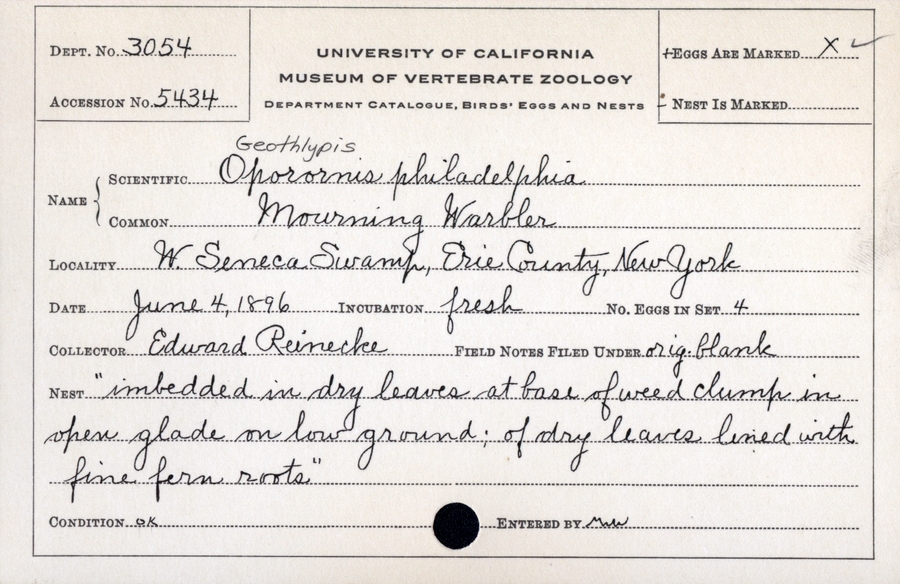 Dept. No. 3054
University of California
Museum of Vertebrate Zoology
Department Catalogue, Birds' Eggs and Nests
Accession No. 5434
+Eggs Are Marked X ✓
- Nest Is Marked
Geothlypis
Name
Scientific Oporornis philadelphia
Common Mourning Warbler
Locality W. Seneca Swamp, Erie County, New York
Date June 4, 1896 Incubation fresh No. Eggs in Set 4
Collector Edward Reinecke Field Notes Filed Under orig. blank
Nest "imbedded in dry leaves at base of weed clump in
open glade on low ground; of dry leaves lined with
fine fern roots"
Condition ok Entered by